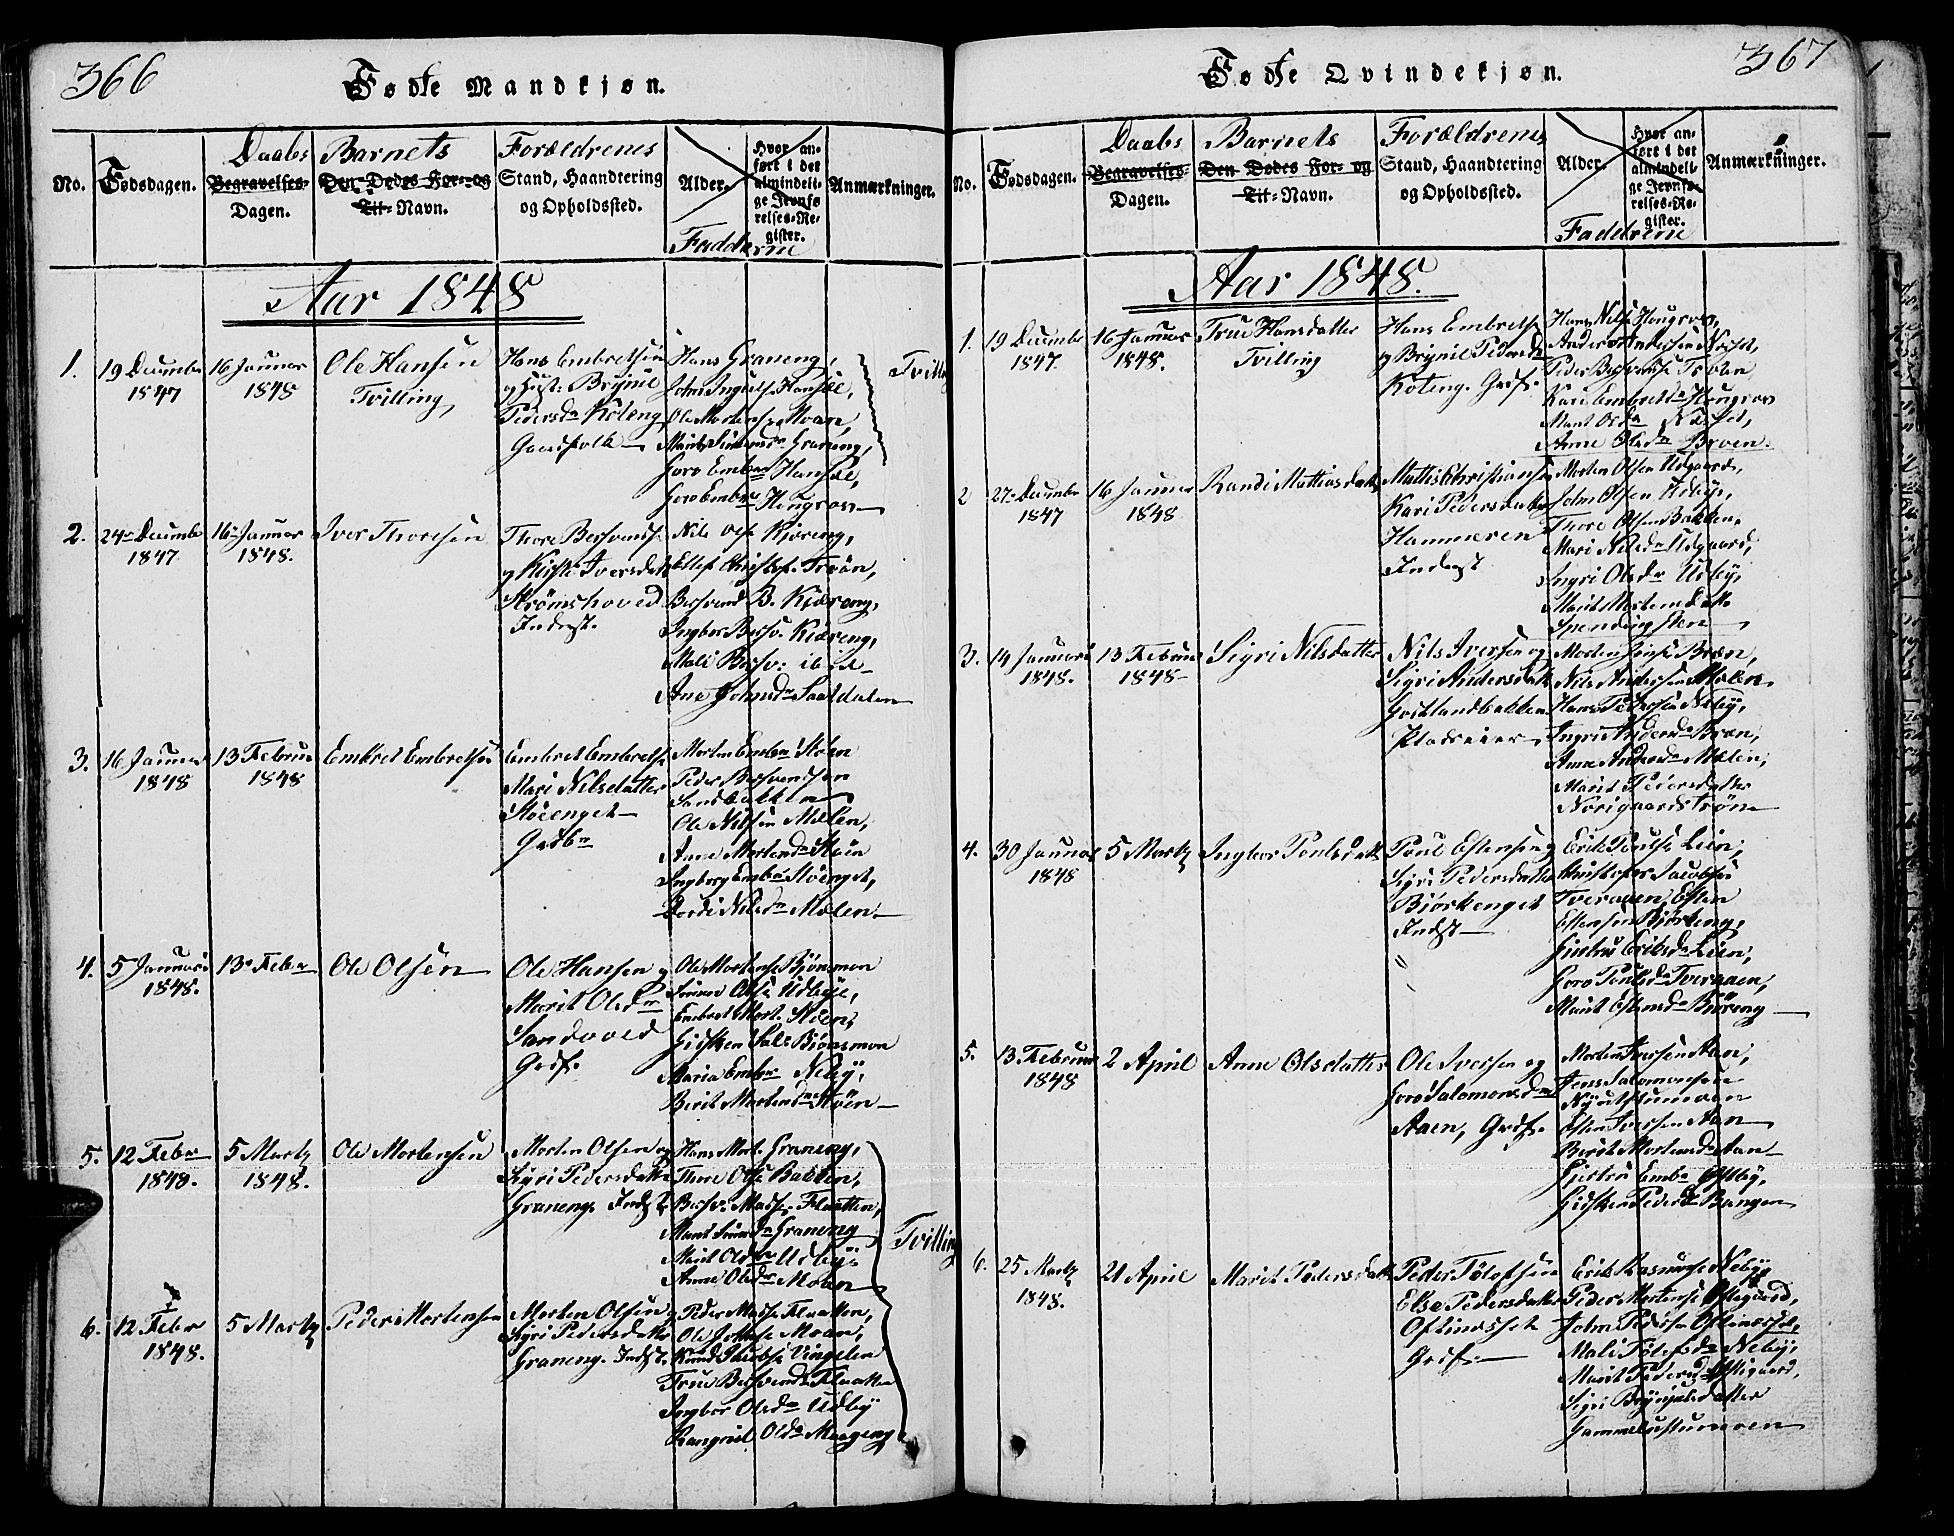 366
Fødte Mandkjøn.
No.
Fødsdagen.
Daabs
Begravelses-
Dagen.
Barnets
Den Dødes For- og
Til-Navn.
Forældrenes
Stand, Haandtering
og Opholdssted.
Alder.
Hvor an-
ført i det
almindeli-
ge Jevnfø-
relses-Re-
gister.
Fadderne
Anmærkninger.
Aar 1848
1.
19 Decembr
1847
16 Januar
1848
Ole Hansen
Tvilling
Hans Embretsen
og Brynil
Pedersdr Koteng
Gaardfolk
Hans Graneng,
John Ingulfs. Hansæl,
Ole Mortens. Moan,
Marit Simensdr Graneng,
Goro Embrdr Hansæl,
Goro Embr Haugrov
Tvilling
2.
24 Decembr
1847
16 Januar
1848.
Iver Thoresen
Thore Bersvends.
og Kirsti Iversdatt
Strømshoved
Inderst.
Nils Ols. Kjæreng,
Ellef Christof. Trøen,
Bersvend B. Kjæreng,
Ingbor Bersv. Kjæreng,
Mali Bersv: ibid
Ane Johnsdr Saaldalen
3.
16 Januar
1848
13 Februar
1848
Embret Embretsen
Embret Embretse
Mari Nilsdatter
Støenget
Gaardbr
Morten Embr Støen
Peder Bersvendsen
Sandbakken
Ole Nilsen Mælen,
Anne Mortensdr Støen
Ingborg Embr Støenget,
Dordi Nilsdr Mælen
4.
5 Januar
1848.
13 Febr
Ole Olsen
Ole Hansen og
Marit Olsdr
Sandvold
Grdf.
Ole Mortens. Bjønsmon
Simen Ols. Udbye,
Embret Mort. Støen,
Gidsken Sals Bjønsmon
Maria Embr Neby,
Berit Mortensdr Støen
5.
12 Febr
1848.
5 Martz
1848.
Ole Mortensen
Morten Olsen og
Sigri Pedersdatter
Graneng. Indst.
Hans Mort. Graneng,
Thore Ols. Bakken,
Bersv. Mads. Flaatten,
Marit Simensdr Graneng
Marit Olsdr Udby,
Anne Olsdr Moen
Tvilling
6.
12 Febr
1848.
5 Martz
Peder Mortensen
Morten Olsen og
Sigri Pedersdatter
Graneng. Indst.
Peder Mads. Flaatten,
Ole Johns. Moan,
Knud Jacobs. Vingelen
True Bersvendr Flaatten
Ingbor Olsdr Udby
Rangnil Olsdr Moseng
367
Fødte Qvindekjøn.
No.
Fødsdagen.
Daabs
Begravelses-
Dagen.
Barnets
Den Dødes For- og
Til-Navn.
Forældrenes
Stand, Haandtering
og Opholdssted.
Alder.
Hvor an-
ført i det
almindeli-
ge Jevnfø-
relses-Re-
gister.
Faddrene
Anmærkninger.
Aar 1848.
1.
19 Decembr
1847.
16 Januar
1848.
True Hansdatter
Tvilling
Hans Embretsen
og Brynil Pedersdr
Koteng. Grdf.
Hans Nils. Haugrov,
Peder Bersvends. Trøen
Kari Embretsdr Haugrov
Marit Olsdr
Anne Olsdr Brøen.
2
27 Decembr
1847
16 Januar
1848
Randi Mattiasdatt
Mattis Christians.
Kari Pedersdatter
Hammeren
Inderst
Morten Olsen Udgaard,
John Olsen Udby,
Thore Olsen Bakken,
Mari Nilsdr Udgaard,
Ingri Olsdr Udby,
Marit Mortensdatt.
Spendingsten
3.
14 Januar
1848.
13 Februar
1848
Sigri Nilsdatter
Nils Iversen og
Sigri Andersdatt.
Gostlandbakken
Pladseier
Morten Jons. Bræn,
Nils Andersen Mælen
Hans Pedersen Neby,
Ingri Andersdr Bræn,
Anne Andersdr Mælen,
Marit Pedersdatter
Norigaardstrøen
4.
30 Januar
1848
5 Martz
Ingbor Poulsdatt
Poul Estensen og
Sigri Pedersdatter
Bjørkenget
Indst
Erik Pouls. Lien,
Christofer Jacobsen
Tveraaen, Esten
Estensen Bjørkeng,
Gjertru Eriksdr Lien,
Goro Poulsdr Tveraaen,
Marit Estensdr Bjøreng
5.
13 Februar
1848
2 April
Anne Olsdatter
Ole Iversen og
Goro Salomonsdr
Aaen, Grdf.
Morten Iversen Aaen,
Jens Salomonsen
Nyeustumoen
Esten Iversen Aaen
Berit Mortensdr Aaen
Gjertru Embr Østby,
Gidsken Pedersdr Bangen
6.
25 Martz
1848.
21 April
Marit Pedersdatt
Peder Tølefsen
Else Pedersdatter
Oftinæsset
Grdf.
Erik Rasmusse Neby
Peder Mortense Østgaard,
John Peders. Oftinæsset,
Mali Tølefsdr Neby,
Marit Pedersdr Østigaard,
Sigri Brynjulsdatter
Gammelustumoen